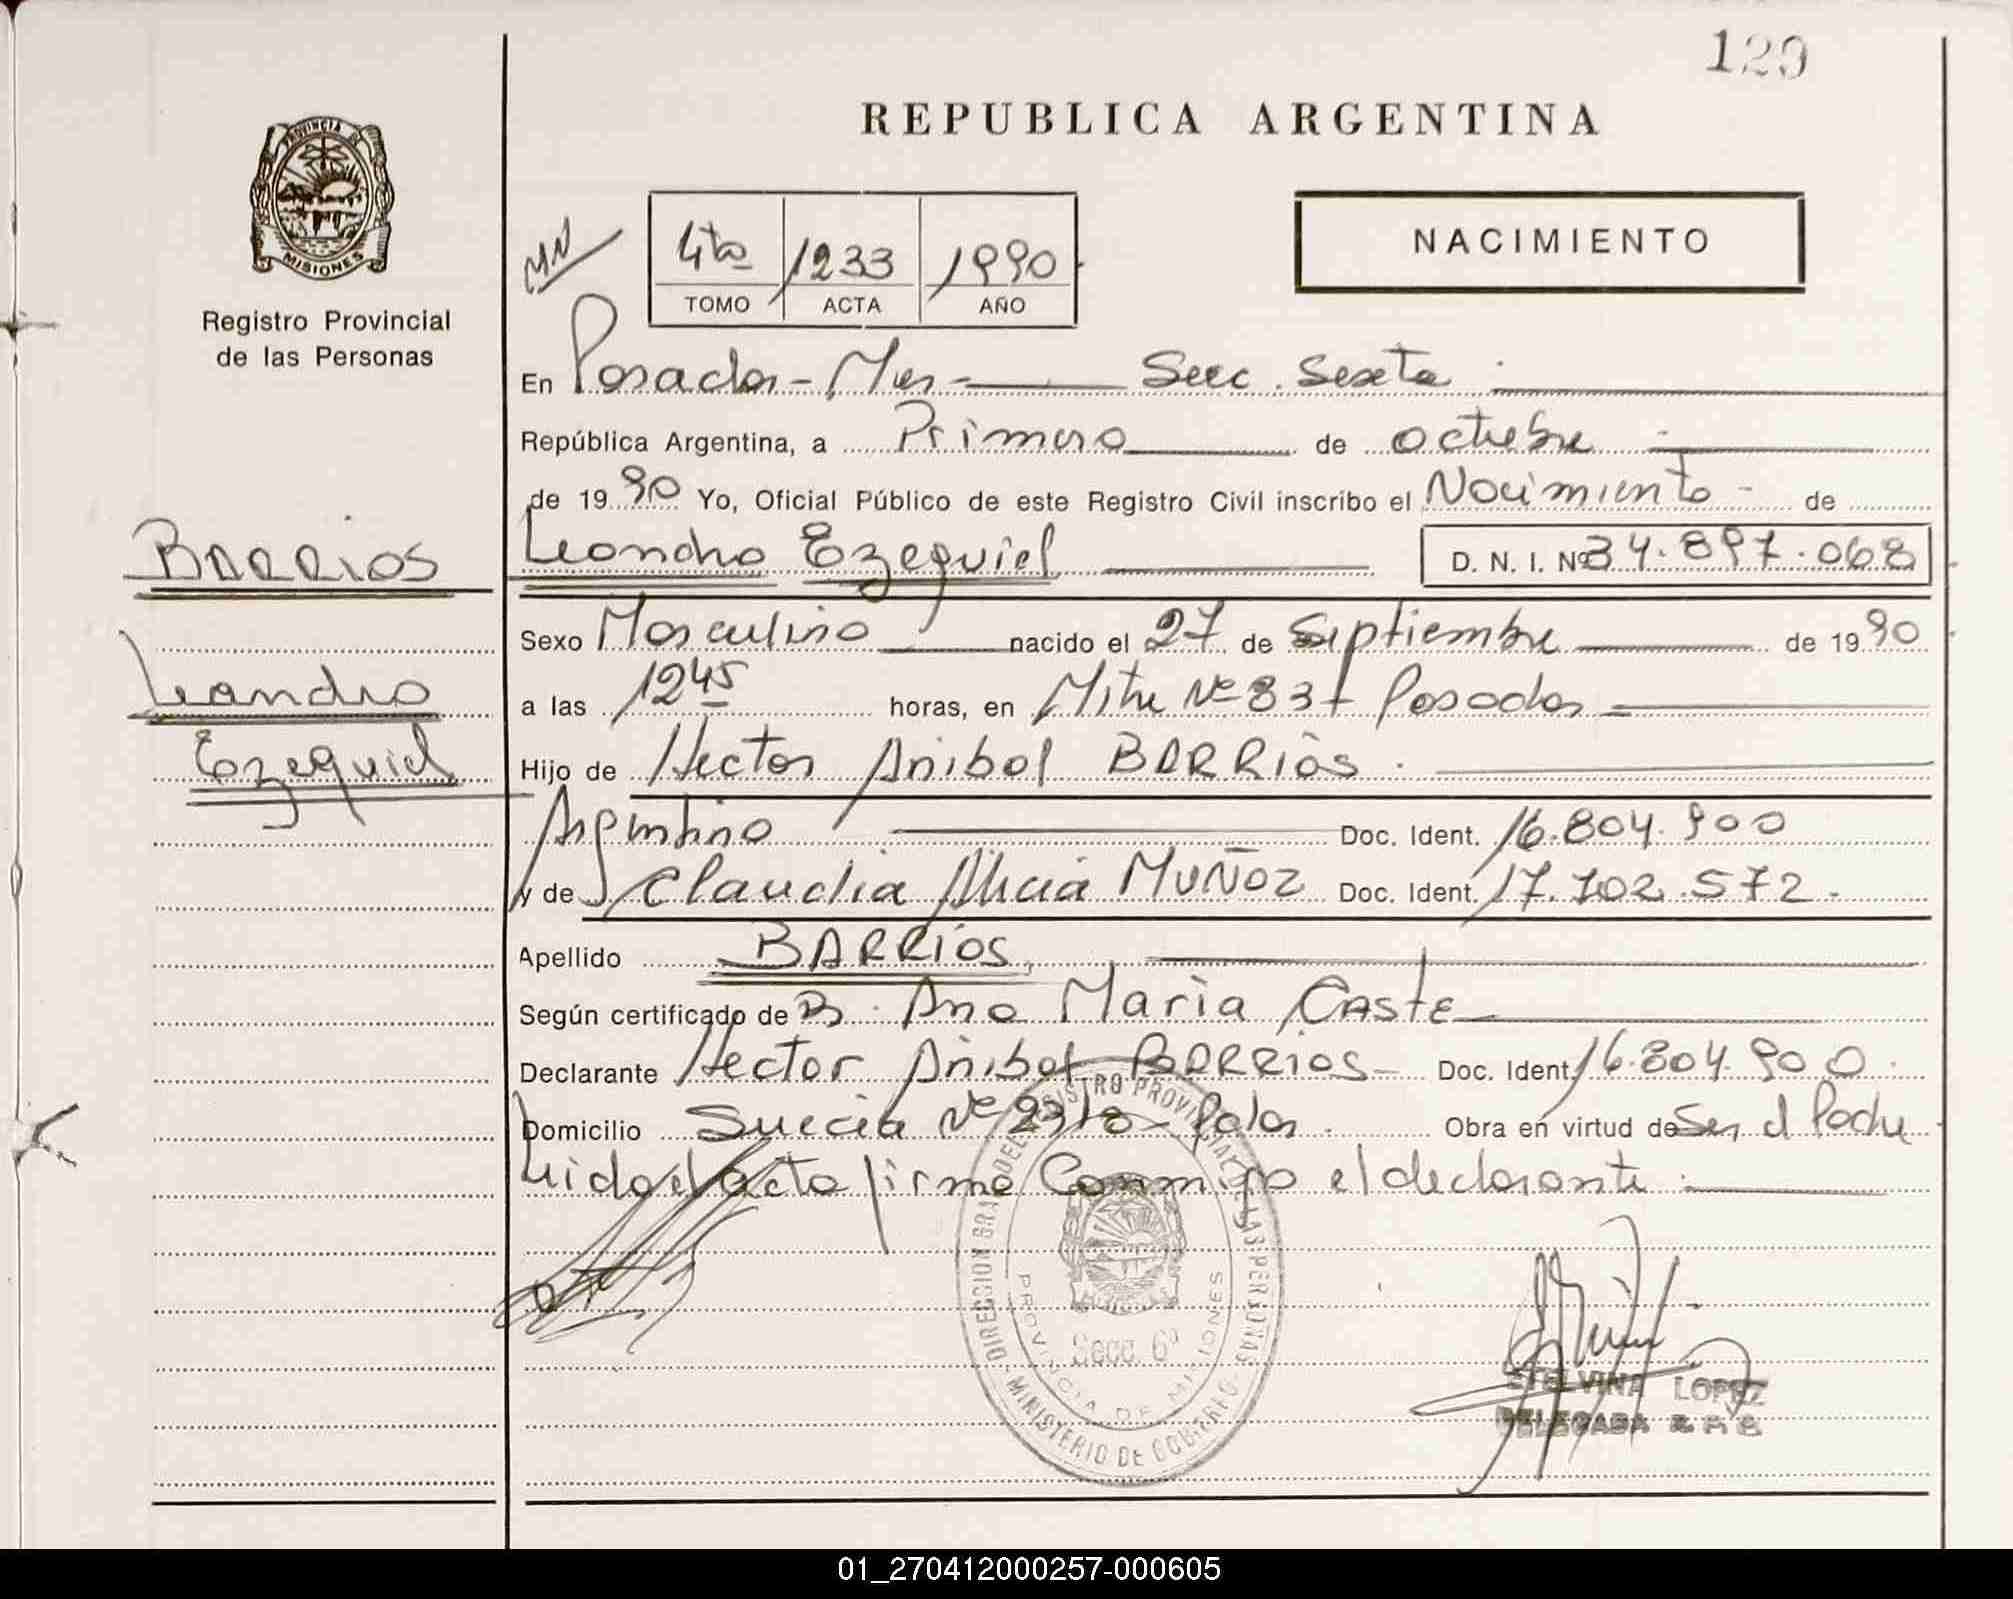 129
REPUBLICA ARGENTINA
PROVINCIA DE
MISIONES
Registro Provincial
de las Personas
NACIMIENTO
4to 1233 1990
TOMO ACTA AÑO
En Posadas - Mnes - Secc. Sexta
República Argentina, a Primero de octubre
de 1990 Yo, Oficial Público de este Registro Civil inscribo el Nacimiento - de
BARRIOS
Leandro Ezequiel D. N. I. Nº 34.897.068
Sexo Masculino nacido el 27 de Septiembre de 1990
Leandro
a las 1245 horas, en Mitre Nº 837 Posadas
Ezequiel
Hijo de Hector Anibal BARRIOS.
Argentino Doc. Ident. 16.804.900
y de Claudia Alicia MUÑOZ Doc. Ident. 17.702.572.
Apellido BARRIOS,
Según certificado de Ana Maria CASTE
Declarante Hector Anibal BARRIOS - Doc. Ident. 16.804.900.
Domicilio Suecia Nº Pdas. Obra en virtud de Ser el Padre
Leida el acta firma Conmigo el declarante.
DIRECCION GRAL DEL REGISTRO PROVINCIAL DE LAS PERSONAS
PROVINCIA DE MISIONES
Secc. 6ª
MINISTERIO DE GOBIERNO
ETELVINA LOPEZ
DELEGADA
01_270412000257-000605